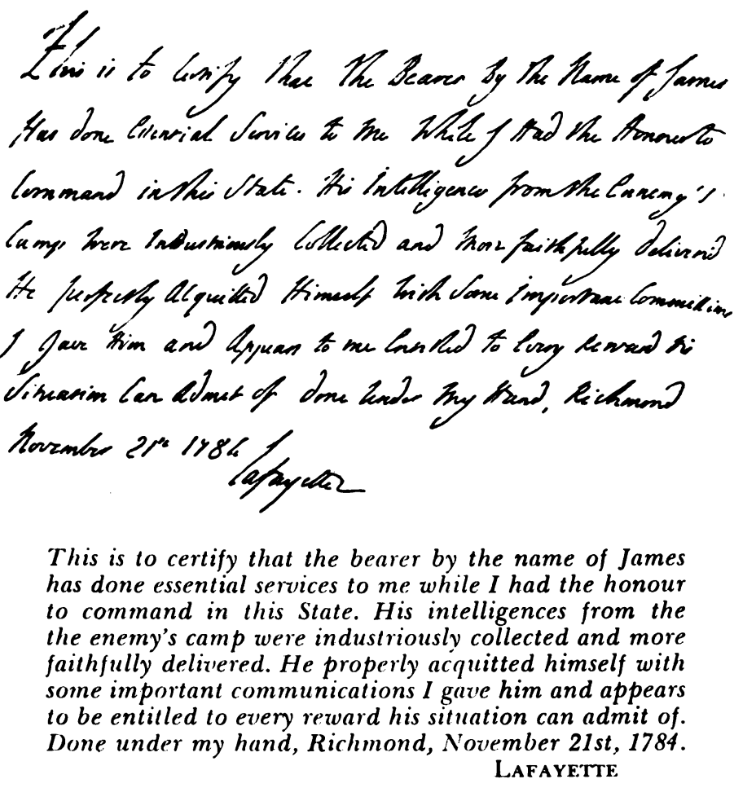 This is to Certify that the Bearer By the Name of James
Has done Essential Services to me While I Had the Honour to
Command in this State. His Intelligences from the Ennemy's
Camp Were Industriously Collected and More faithfully deliverd
He properly Acquitted Himself With Some Important Commissions
I Gave Him and Appears to me Entitled to Every Reward his
Situation Can Admit of done Under My Hand, Richmond
November 21st 1784
Lafayette
This is to certify that the bearer by the name of James
has done essential services to me while I had the honour
to command in this State. His intelligences from the
the enemy's camp were industriously collected and more
faithfully delivered. He properly acquitted himself with
some important communications I gave him and appears
to be entitled to every reward his situation can admit of.
Done under my hand, Richmond, November 21st, 1784.
LAFAYETTE